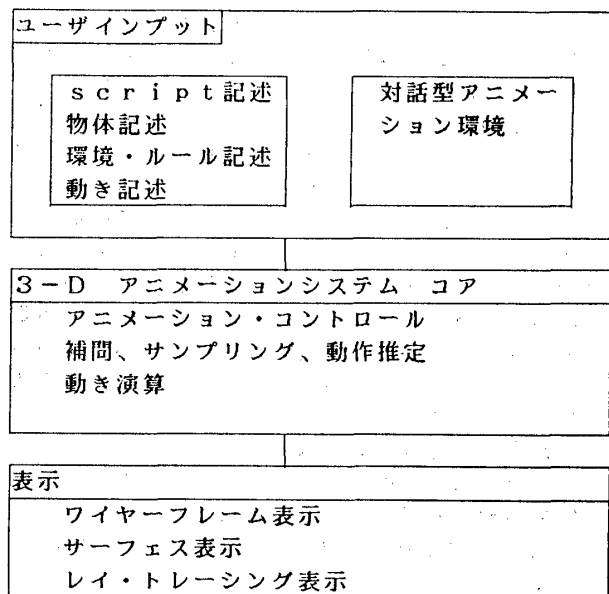 ユーザインプット
script記述
物体記述
環境・ルール記述
動き記述
対話型アニメー
ション環境
3-D アニメーションシステム コア
アニメーション・コントロール
補間、サンプリング、動作推定
動き演算
表示
ワイヤーフレーム表示
サーフェス表示
レイ・トレーシング表示